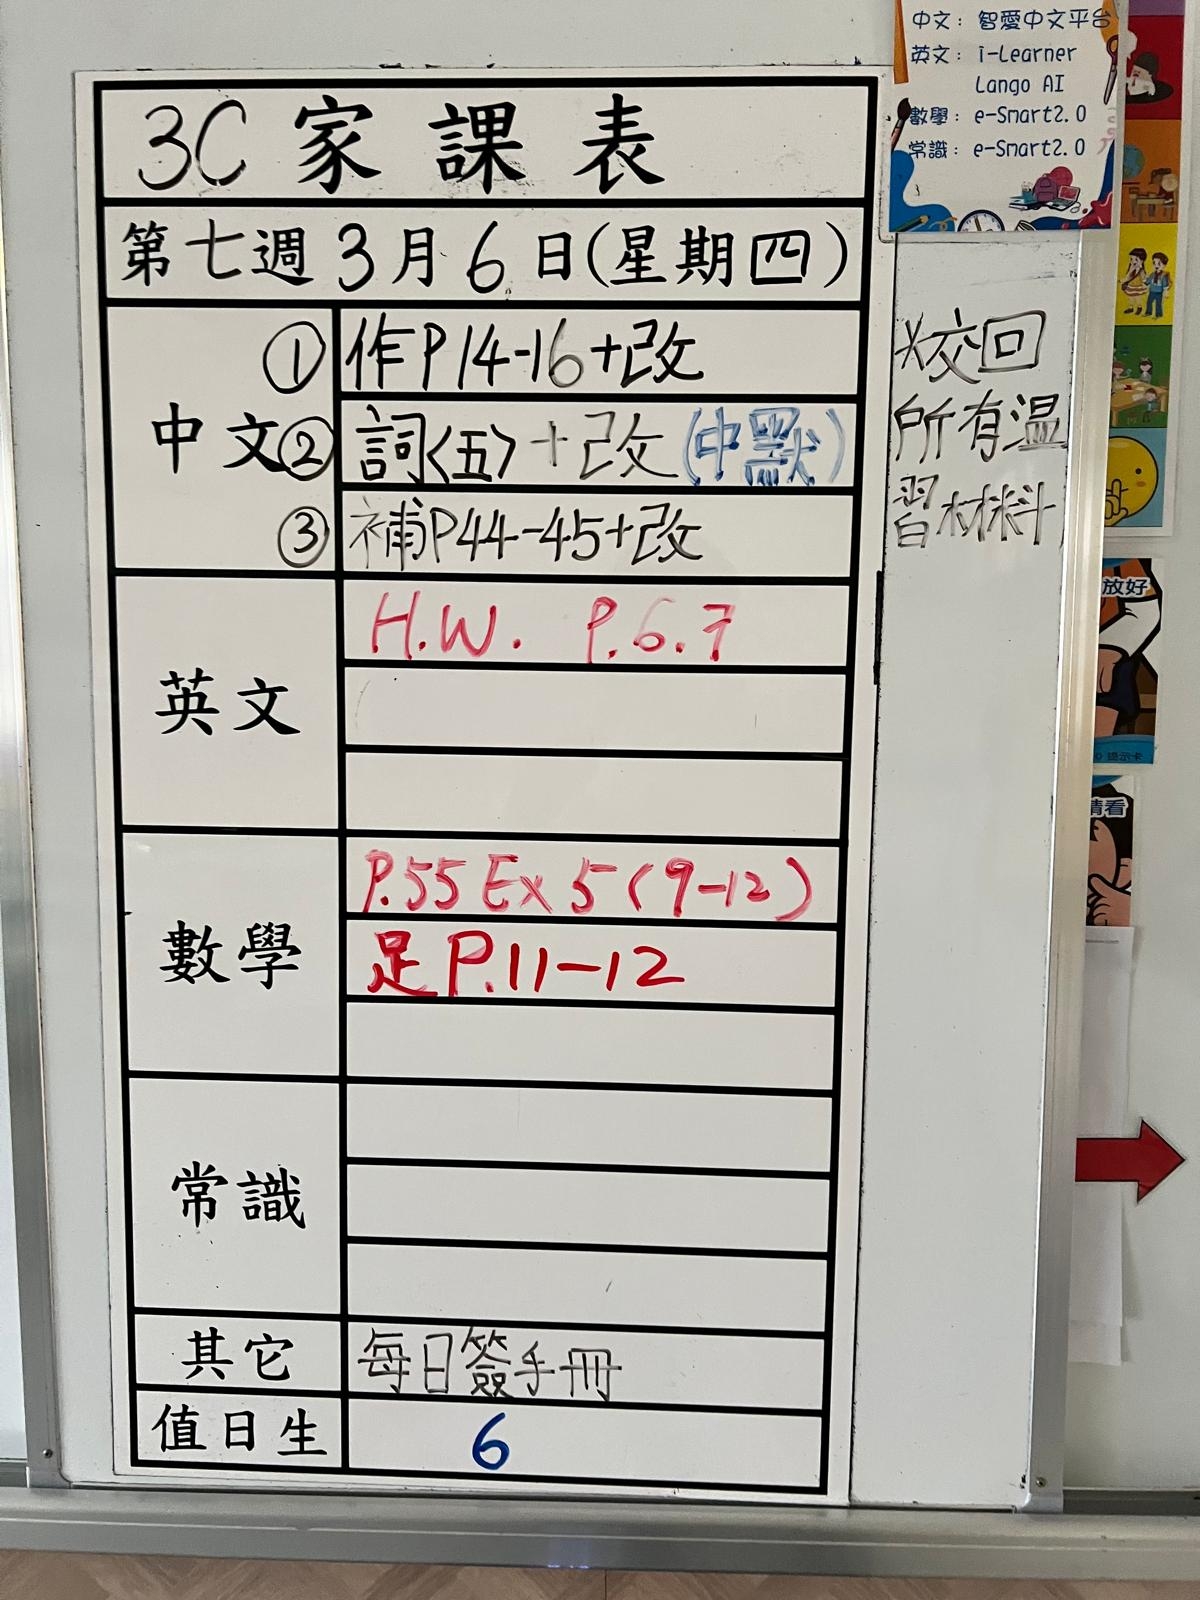 中文：智愛中文平台
英文：i-Learner
Lango AI
數學：e-Smart2.0
常識：e-Smart2.0
3C 家課表
第七週 3月6日(星期四)
中文
① 作P14-16+改
② 詞<五>+改(中默)
③ 補P44-45+改
英文
H.W. P.6.7
數學
P.55 Ex 5 (9-12)
足P.11-12
常識
其它
每日簽手冊
值日生
6
*交回
所有溫
習材料
放好
提示卡
請看